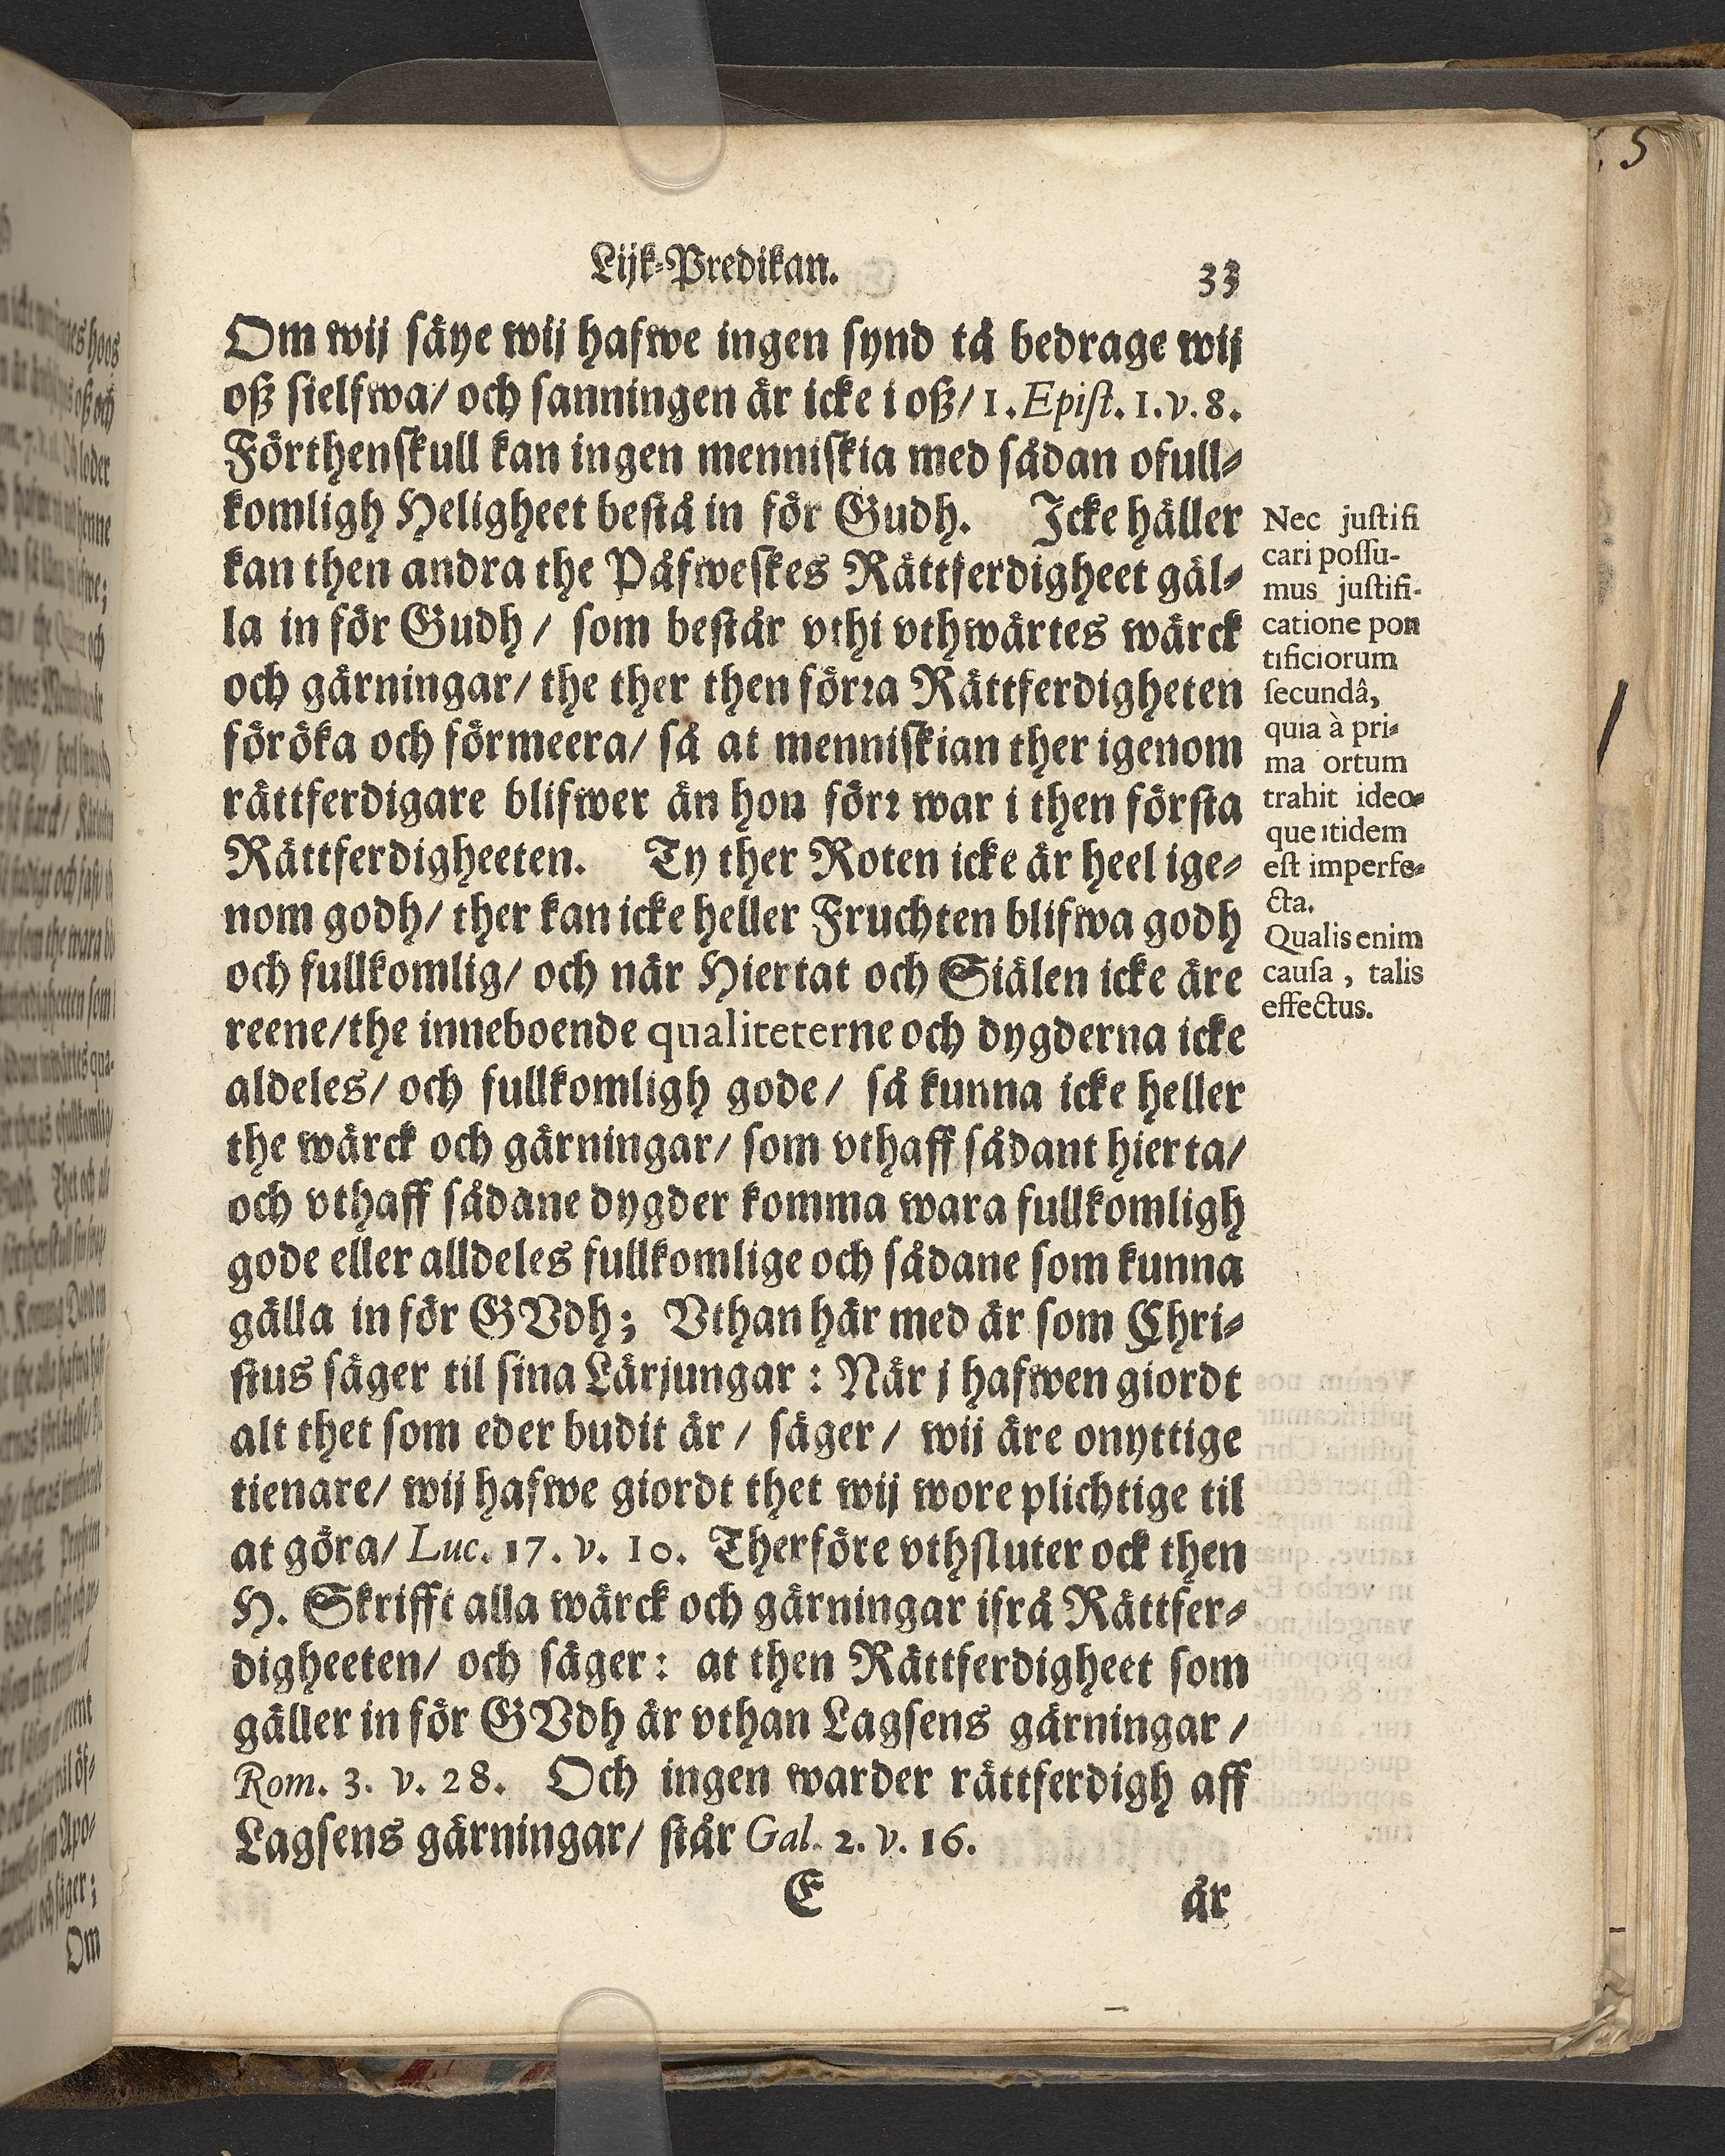 Lijk-Predikan.
33
Om wij säye wij hafwe ingen synd tå bedrage wij
oß sielfwa/ och sanningen är icke i oß/ 1. Epist. 1. v. 8.
Förthenskull kan ingen menniskia med sådan ofull-
komligh Heligheet bestå in för Gudh. Icke häller
kan then andra the Påfweskes Rättferdigheet gäl-
la in för Gudh/ som består vthi vthwärtes wärck
och gärningar/ the ther then förra Rättferdigheten
föröka och förmeera/ så at menniskian ther igenom
rättferdigare blifwer än hon förr war i then första
Rättferdigheeten. Ty ther Roten icke är heel ige-
nom godh/ ther kan icke heller Fruchten blifwa godh
och fullkomlig/ och när Hiertat och Siälen icke äre
reene/the inneboende qualiteterne och dygderna icke
aldeles/ och fullkomligh gode/ så kunna icke heller
the wärck och gärningar/ som vthaff sådant hierta/
och vthaff sådane dygder komma wara fullkomligh
gode eller alldeles fullkomlige och sådane som kunna
gälla in för GVdh; Vthan här med är som Chri-
stus säger til sina Lärjungar: När j hafwen giordt
alt thet som eder budit är/ säger/ wij äre onyttige
tienare/ wij hafwe giordt thet wij wore plichtige til
at göra/ Luc. 17. v. 10. Therföre vthsluter ock then
H. Skrifft alla wärck och gärningar ifrå Rättfer-
digheeten/ och säger: at then Rättferdigheet som
gäller in för GVdh är vthan Lagsens gärningar/
Rom. 3. v. 28. Och ingen warder rättferdigh aff
Lagsens gärningar/ står Gal. 2. v. 16.
E
är
Nec justifi
cari possu-
mus justifi-
catione pon
tificiorum
secundâ,
quia à pri-
ma ortum
trahit ideo-
que itidem
est imperfe-
cta.
Qualis enim
causa, talis
effectus.
5
Om